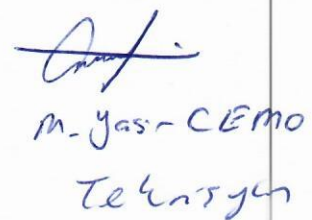 M-Yasir CEMO
Teknisyen